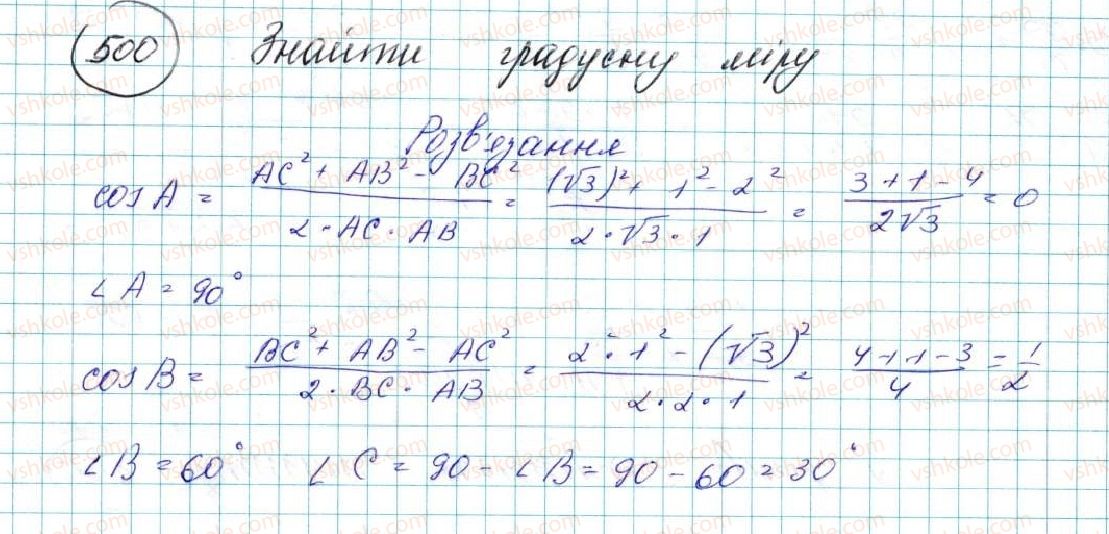 500 Знайти градусну міру
Розв'язання
cos A = (AC² + AB² - BC²) / (2 · AC · AB) = ((√3)² + 1² - 2²) / (2 · √3 · 1) = (3 + 1 - 4) / (2√3) = 0
∠A = 90°
cos B = (BC² + AB² - AC²) / (2 · BC · AB) = (2² · 1² - (√3)²) / (2 · 2 · 1) = (4 + 1 - 3) / 4 = 1/2
∠B = 60° ∠C = 90 - ∠B = 90 - 60 = 30°